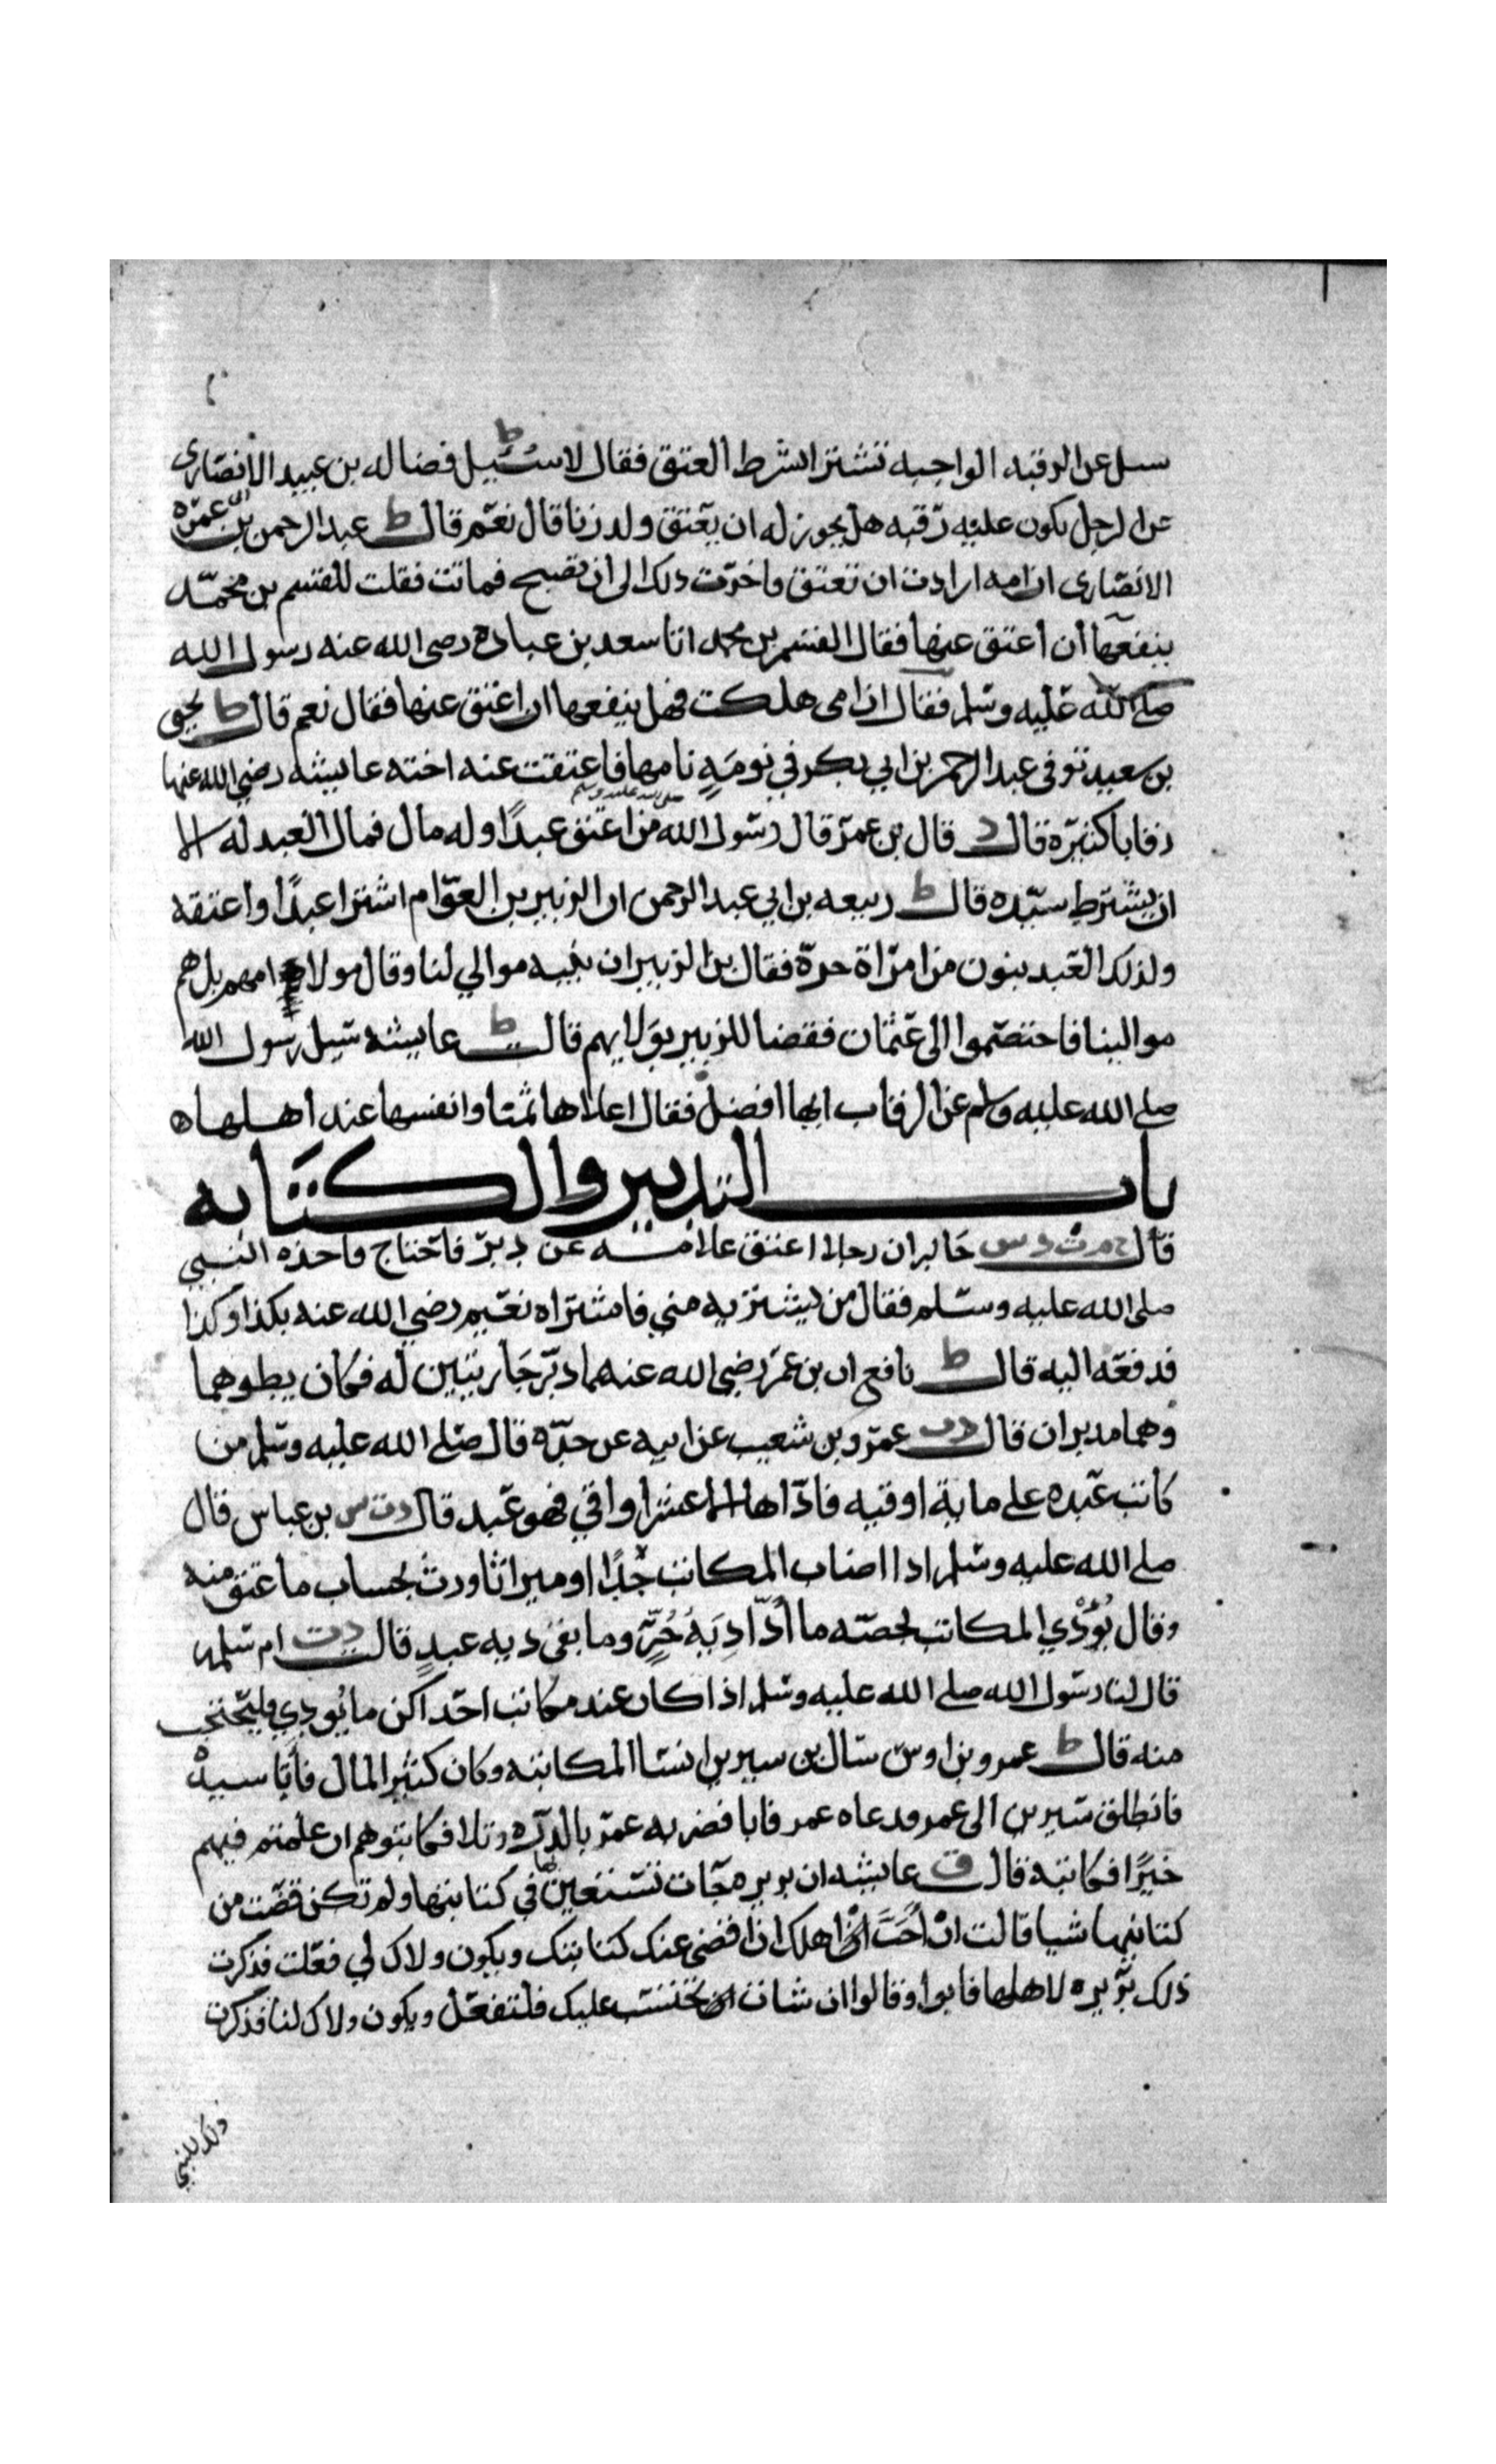 سىل عن الرقبه الواجبه تشترا بشرط العتق فقال لا ط سُئيل فضاله بن عبيد الانصارى
عن الرجل يكون عليه رقبه هل يجوز له ان يعتق ولد زنا قال نعم قال ط عبد الرحمن بن ابى عمره
الانصارى ان امه ارادت ان تعتق واخرت ذلك الى ان تصبح فماتت فقلت للقسم بن محمد
ينفعها أن أعتق عنها فقال القسم بن محمد اتا سعد بن عباده رضى الله عنه رسول الله
صلى الله عليه وسلم فقال ان امى هلكت فهل ينفعها ان اعتق عنها فقال نعم قال ط يحيى
بن سعيد توفى عبد الرحمن بن ابي بكر في نومَةٍ نامها فاعتقت عنه اخته عايشه رضي الله عنها
رقابا كثيره قال د قال بن عمر قال رسول الله صلى الله عليه وسلم من اعتق عبدًا وله مال فمال العبد له الا
ان يشترط سيده قال ط ربيعه بن ابي عبد الرحمن ان الزبير بن العوام اشترا عبدًا واعتقه
ولذلك العبد بنون من امراة حرة فقال بن الزبير ان بنيه موالي لنا وقال مولا امهم بل هم
موالينا فاختصموا الى عثمان فقضا للزبير بوَلايهم قال ط عايشه سيل رسول الله
صلى الله عليه وسلم عن الرقاب ايها افضل فقال اعلاها ثمنا وانفسها عند اهلها ه
باب التدبير والكتابه
قال خ م ت د س جابر ان رجلا اعتق غلامه عن دبر فاحتاج فاخذه النبي
صلى الله عليه وسلم فقال من يشتريه مني فاشتراه نعيم رضي الله عنه بكذا وكذا
فدفعه اليه قال ط نافع ان بن عمر رضي الله عنهما دبر جاريتين له فكان يطوهما
وهما مدبران قال د ت عمرو بن شعيب عن ابيه عن جده قال صلى الله عليه وسلم من
كاتب عبده على ماية اوقيه فاداها الا عشر اواقي فهو عبد قال د ت س بن عباس قال
صلى الله عليه وسلم اذا اصاب المكاتب حُدًا او ميراثا ورث بحساب ما عتق منه
وقال يُؤْدي المكاتب بحصته ما أدّا دِيَةُ حُرٍّ وما بقى ديه عبدٍ قال د ت ام سلمه
قال لنا رسول الله صلى الله عليه وسلم اذا كان عند مكاتب احداكن ما يُودي فليحتجب
منه قال ط عمرو بن اوس سال بن سيرين انسا المكاتبه وكان كثير المال فأبا سيدهْ
فانطلق سيرين الى عمر فدعاه عمر فابا فضربه عمر بالدره وتلا فكاتبوهم ان علمتم فيهم
خيرًا فكاتبه قال ق عايشه ان بريره جآت تستعينها في كتابتها ولم تكن قضت من
كتابتها شيا قالت انْ أَحَبَّ اهلك ان اقضى عنك كتابتك ويكون ولاك لي فعلت فذكرت
ذلك بريره لاهلها فابوا وقالوا ان شات ان تحتسب عليك فلتفعل ويكون ولاك لنا فذكرت
ذلك للنبي